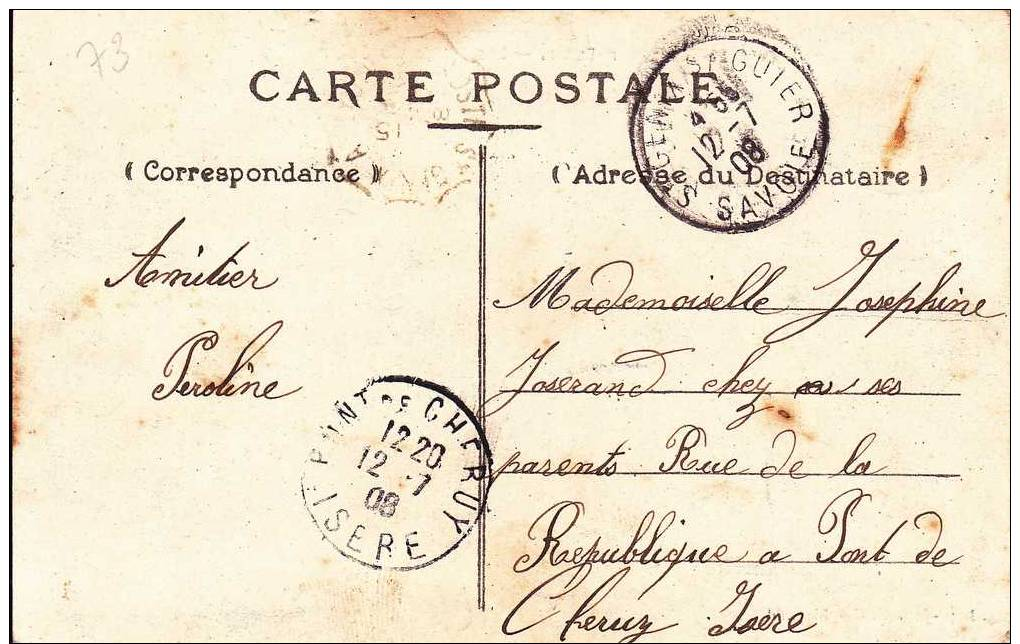 73
CARTE POSTALE
(Correspondance)
(Adresse du Destinataire)
ST GENIX S/ GUIER
12 -7
08
SAVOIE
Amitier
Peroline
PONT DE CHERUY
12 20
12 -7
08
ISERE
Mademoiselle Josephine
Joserand chez ses
parents Rue de la
Republique a Pont de
Cheruy Isere